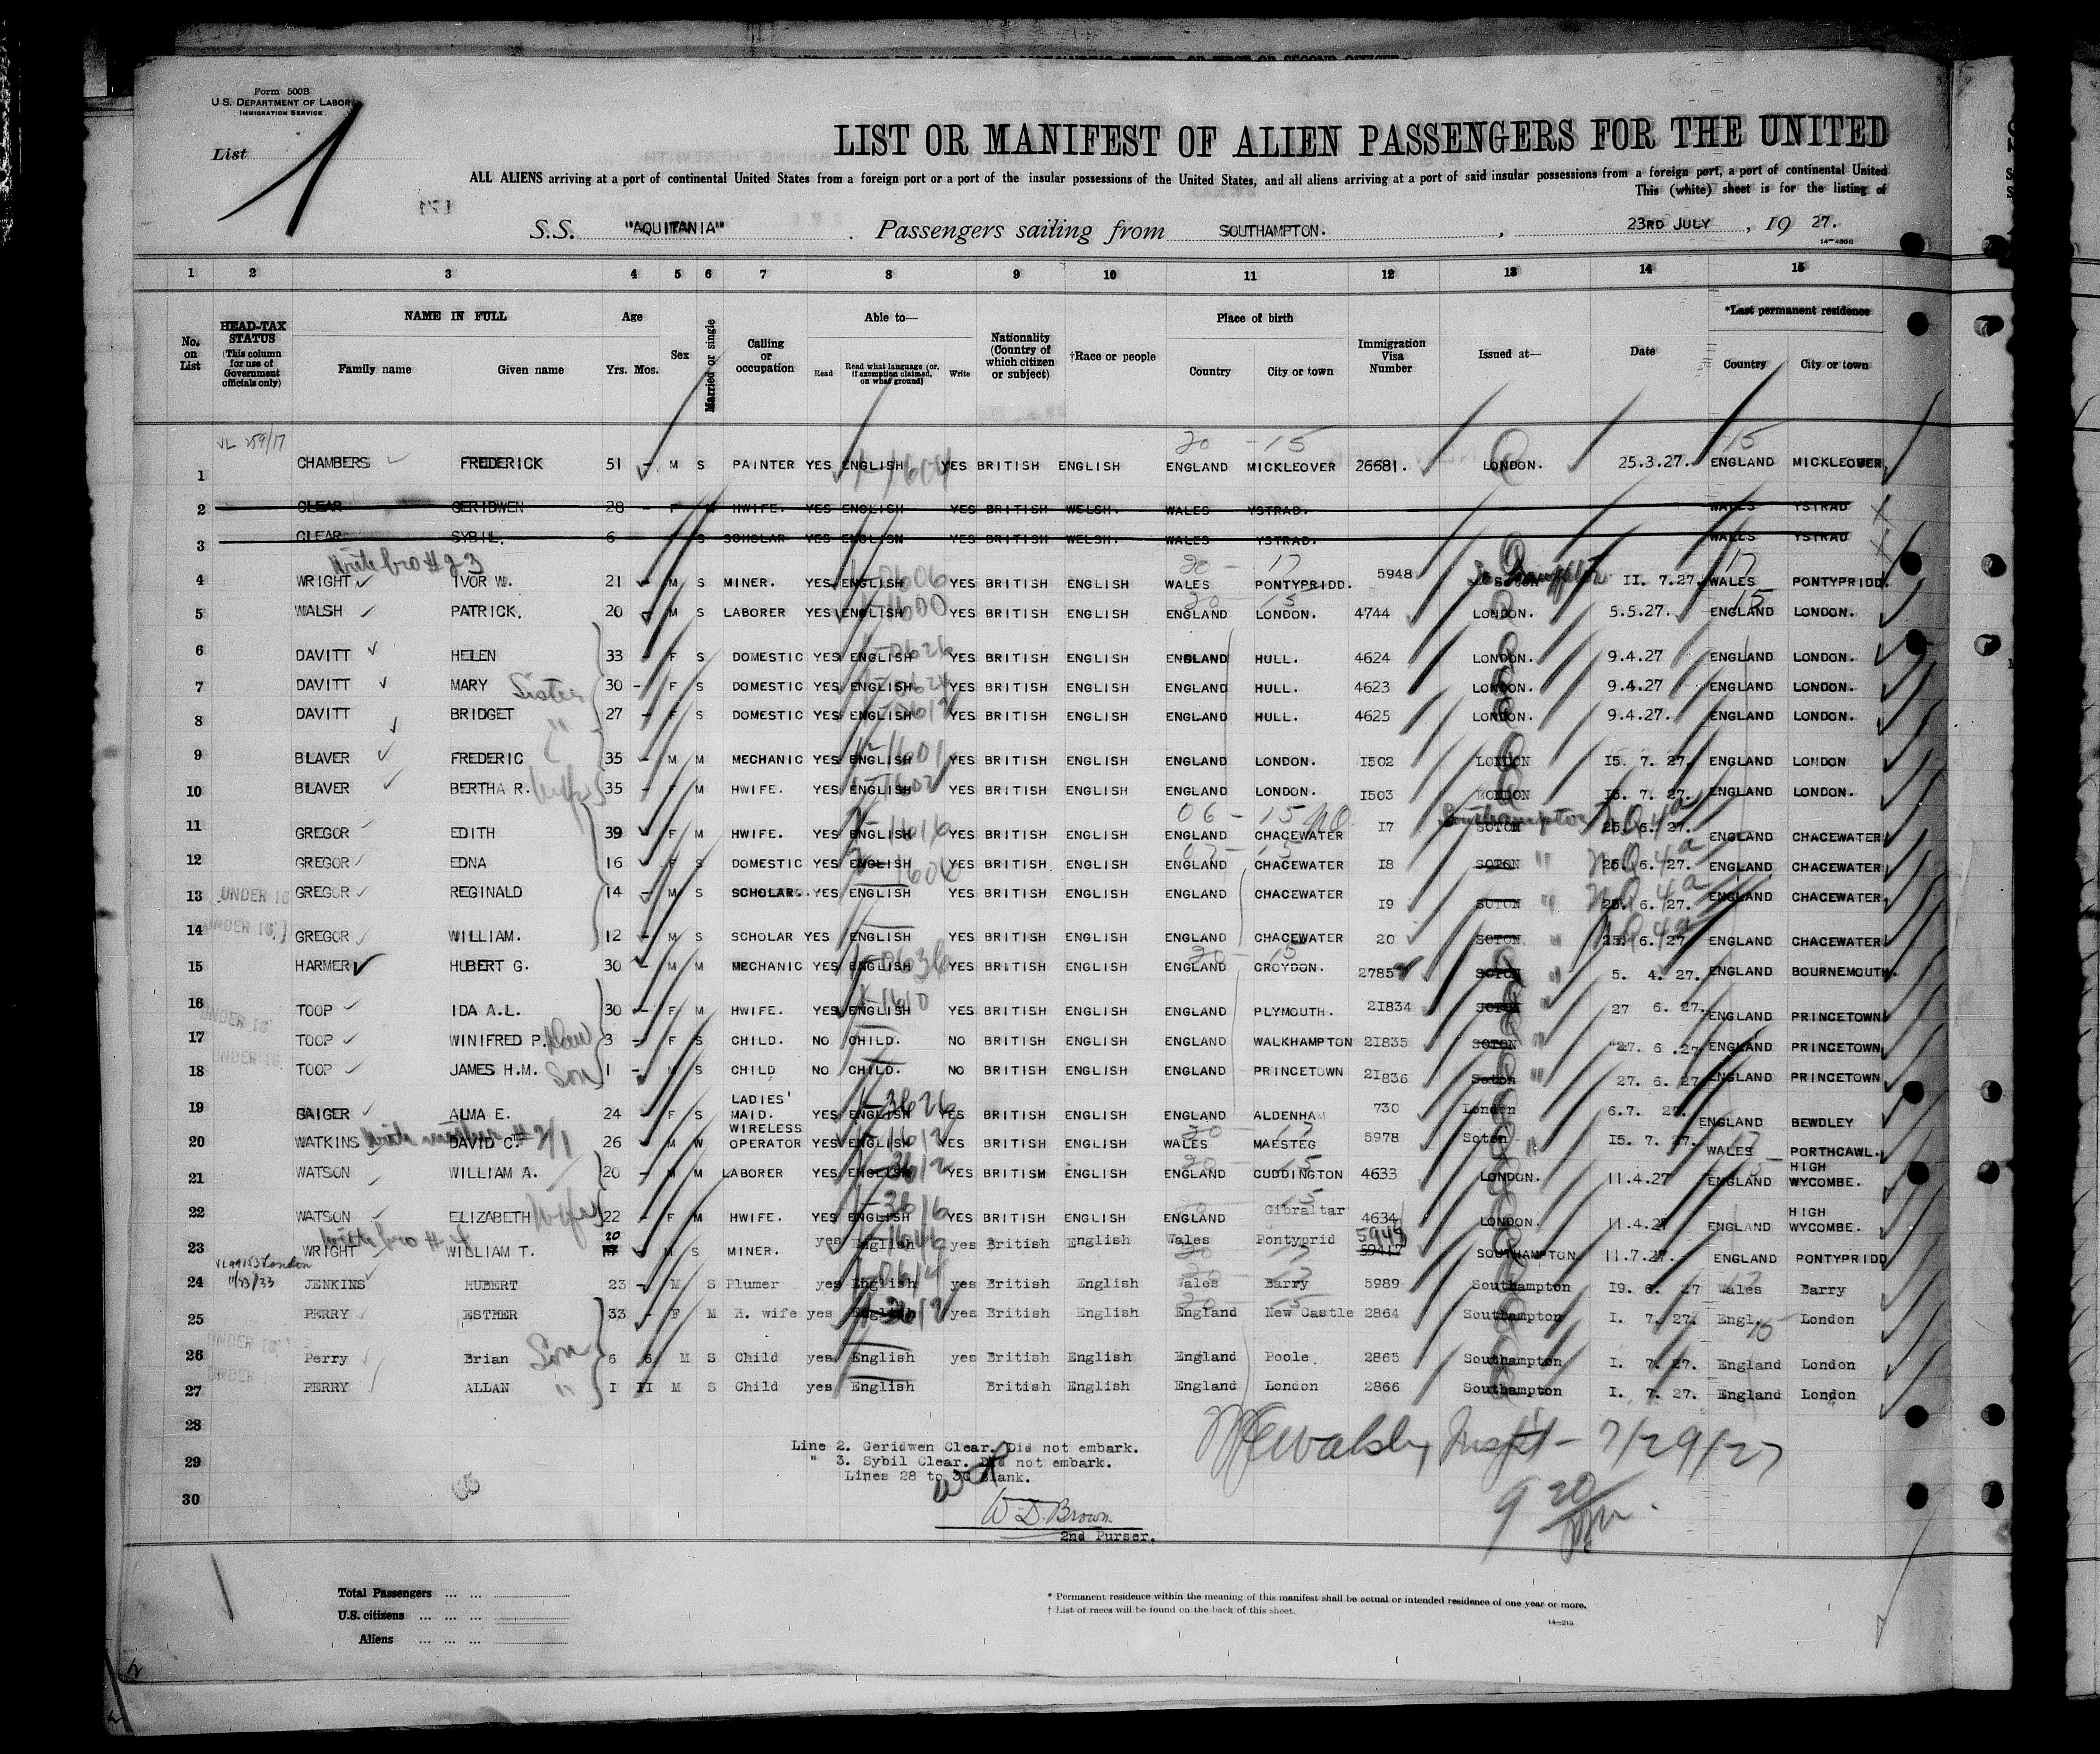 Form 500B
U.S. DEPARTMENT OF LABOR
IMMIGRATION SERVICE
List 1
LIST OR MANIFEST OF ALIEN PASSENGERS FOR THE UNITED
ALL ALIENS arriving at a port of continental United States from a foreign port or a port of the insular possessions of the United States, and all aliens arriving at a port of said insular possessions from a foreign port, a port of continental United
This (white) sheet is for the listing of
S.S. "AQUITANIA" . Passengers sailing from SOUTHAMPTON. , 23RD JULY , 19 27.
1 2 3 4 5 6 7 8 9 10 11 12 13 14 15
No. on List
HEAD-TAX STATUS (This column for use of Government officials only)
NAME IN FULL
Family name Given name
Age
Yrs. Mos.
Sex
Married or single
Calling or occupation
Able to—
Read Read what language (or, if exemption claimed, on what ground) Write
Nationality (Country of which citizen or subject)
†Race or people
Place of birth
Country City or town
Immigration Visa Number
Issued at—
Date
*Last permanent residence
Country City or town
VL 259/17 20 - 15 15
1 CHAMBERS FREDERICK 51 - M S PAINTER YES ENGLISH YES BRITISH ENGLISH ENGLAND MICKLEOVER 26681. LONDON. 25.3.27. ENGLAND MICKLEOVER
2 CLEAR GERIDWEN 28 - F M HWIFE. YES ENGLISH YES BRITISH WELSH. WALES YSTRAD. WALES YSTRAD
3 CLEAR SYBIL. 6 S SCHOLAR YES ENGLISH YES BRITISH WELSH. WALES YSTRAD. WALES YSTRAD
With bro #23
4 WRIGHT IVOR W. 21 - M S MINER. YES ENGLISH YES BRITISH ENGLISH WALES PONTYPRIDD. 5948 SOTON Southampton II. 7.27. WALES PONTYPRIDD.
5 WALSH PATRICK. 20 - M S LABORER YES ENGLISH YES BRITISH ENGLISH ENGLAND LONDON. 4744 LONDON. 5.5.27. ENGLAND LONDON.
6 DAVITT HELEN 33 - F S DOMESTIC YES ENGLISH YES BRITISH ENGLISH ENGLAND HULL. 4624 LONDON. 9.4.27 ENGLAND LONDON.
7 DAVITT MARY Sister 30 - F S DOMESTIC YES ENGLISH YES BRITISH ENGLISH ENGLAND HULL. 4623 LONDON. 9.4.27 ENGLAND LONDON.
8 DAVITT BRIDGET " 27 - F S DOMESTIC YES ENGLISH YES BRITISH ENGLISH ENGLAND HULL. 4625 LONDON. 9.4.27. ENGLAND LONDON.
9 BLAVER FREDERIC 35 - M M MECHANIC YES ENGLISH YES BRITISH ENGLISH ENGLAND LONDON. I502 LONDON I5. 7. 27. ENGLAND LONDON
10 BLAVER BERTHA R. wife 35 - F M HWIFE. YES ENGLISH YES BRITISH ENGLISH ENGLAND LONDON. I503 LONDON I5. 7. 27. ENGLAND LONDON.
11 GREGOR EDITH 39 - F M HWIFE. YES ENGLISH YES BRITISH ENGLISH ENGLAND CHACEWATER I7 SOTON Southampton 25. 6. 27. ENGLAND CHACEWATER
12 GREGOR EDNA 16 - F S DOMESTIC YES ENGLISH YES BRITISH ENGLISH ENGLAND CHACEWATER I8 SOTON " 25. 6. 27. ENGLAND CHACEWATER
13 UNDER 16 GREGOR REGINALD 14 - M S SCHOLAR. YES ENGLISH YES BRITISH ENGLISH ENGLAND CHACEWATER I9 SOTON " 25. 6. 27. ENGLAND CHACEWATER
14 UNDER 16 GREGOR WILLIAM. 12 - M S SCHOLAR YES ENGLISH YES BRITISH ENGLISH ENGLAND CHACEWATER 20 SOTON. " 25. 6. 27. ENGLAND CHACEWATER
15 HARMER HUBERT G. 30 - M M MECHANIC YES ENGLISH YES BRITISH ENGLISH ENGLAND CROYDON. 2785 SOTON " 5. 4. 27. ENGLAND BOURNEMOUTH.
16 TOOP IDA A.L. 30 - F M HWIFE. YES ENGLISH YES BRITISH ENGLISH ENGLAND PLYMOUTH. 2I834 SOTON " 27 6. 27. ENGLAND PRINCETOWN
17 UNDER 16 TOOP WINIFRED P. Dau 3 - F S CHILD. NO CHILD. NO BRITISH ENGLISH ENGLAND WALKHAMPTON 2I835 SOTON " 27. 6 .27 ENGLAND PRINCETOWN
18 UNDER 16 TOOP JAMES H.M. Son I - M S CHILD NO CHILD. NO BRITISH ENGLISH ENGLAND PRINCETOWN 2I836 Soton " 27. 6. 27 ENGLAND PRINCETOWN
19 GAIGER ALMA E. 24 - F S LADIES' MAID. YES ENGLISH YES BRITISH ENGLISH ENGLAND ALDENHAM 730 London 6.7. 27. ENGLAND BEWDLEY
20 WATKINS DAVID C. 26 M W WIRELESS OPERATOR YES ENGLISH YES BRITISH ENGLISH WALES MAESTEG 5978 Soton " I5. 7. 27. WALES PORTHCAWL.
21 WATSON WILLIAM A. 20 - M M LABORER YES ENGLISH YES BRITISH ENGLISH ENGLAND CUDDINGTON 4633 LONDON. II.4.27 ENGLAND HIGH WYCOMBE.
22 WATSON ELIZABETH wife 22 - F M HWIFE. YES ENGLISH YES BRITISH ENGLISH ENGLAND Gibraltar 4634 LONDON. II.4.27 ENGLAND HIGH WYCOMBE.
With bro #4
23 WRIGHT WILLIAM T. 20 M S MINER. yes English yes British English Wales Pontyprid 5949 SOUTHAMPTON II.7.27. ENGLAND PONTYPRIDD
24 JENKINS HUBERT 23 - M S Plumer yes English yes British English Wales Barry 5989 Southampton I9. 6. 27 Wales Barry
25 PERRY ESTHER 33 - F M H. wife yes English yes British English England New Castle 2864 Southampton I. 7. 27. Engl. London
26 UNDER 16 Perry Brian Son 6 6 M S Child yes English yes British English England Poole. 2865 Southampton I. 7. 27. England London
27 UNDER PERRY ALLAN " I II M S Child yes English British English England London 2866 Southampton I. 7. 27. England London
28
29
30
Line 2. Geridwen Clear. Did not embark.
" 3. Sybil Clear. Did not embark.
Lines 28 to 30 Blank.
W D. Brown
2nd Purser.
7/29/27
9 20
Total Passengers ... ...
U.S. citizens ... ... ...
Aliens ... ... ...
* Permanent residence within the meaning of this manifest shall be actual or intended residence of one year or more.
† List of races will be found on the back of this sheet.